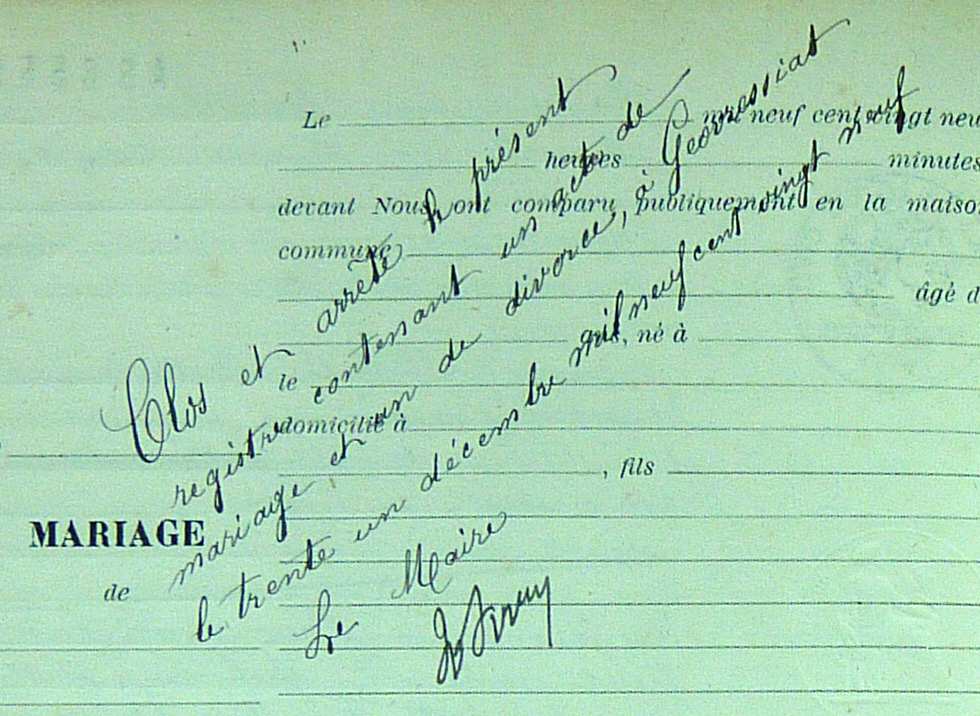 Le mil neuf cent vingt neuf
heures minutes
devant Nous, ont comparu publiquement en la maison
commune
âgé d
ans, né à
le
domicilié à
, fils
MARIAGE
de
Clos et arrêté le présent
registre contenant un acte de
mariage et un de divorce, à Geovressiat
le trente un décembre mil neuf cent vingt neuf
Le Maire